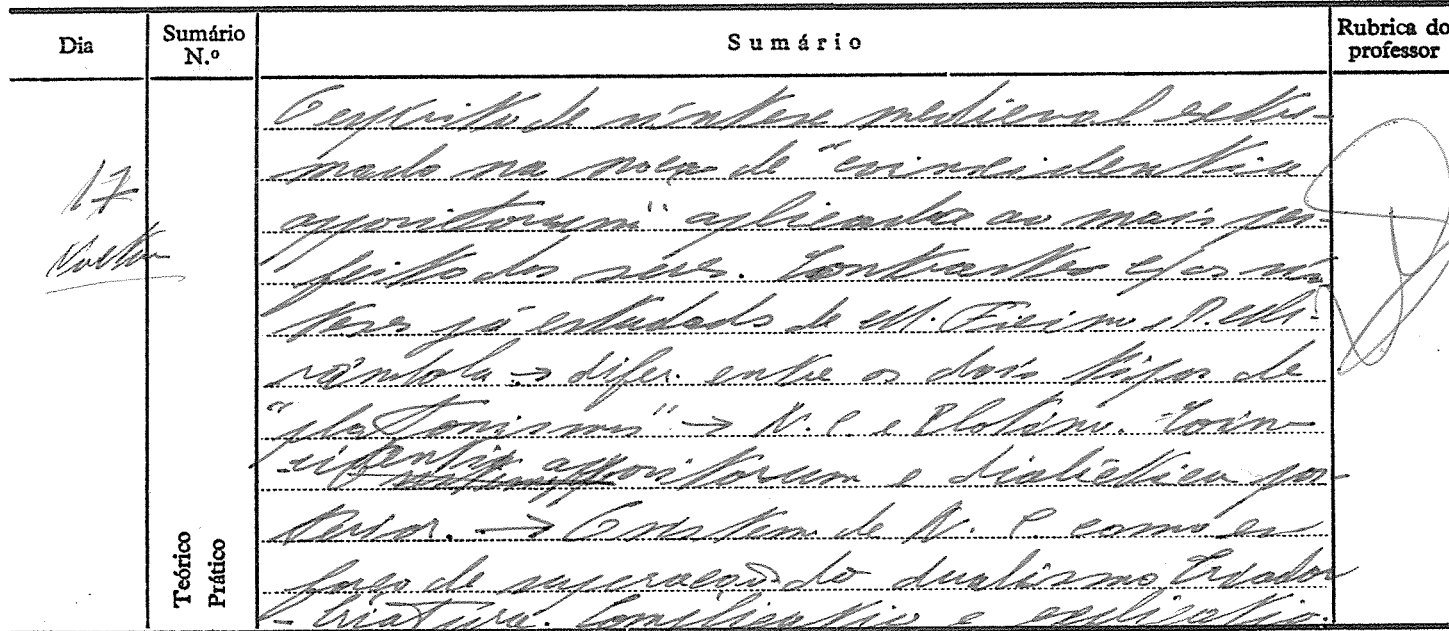 Dia
Sumário N.º
Sumário
Rubrica do professor
17
O espírito de síntese medieval
mado na noção de "coincidentia
oppositorum" aplicada ao mais per-
feito dos seres. Contrastes c/ as sín
teses já estudadas de M. Ficino e P. Mi-
rândola → difer. entre os dois tipos de
"platonismo" → N. C. e Plotino. Coin-
cidentia oppositorum e dialéctica pos
terior. → O sistem de N. C. como es
forço de superação do dualismo Criador
- Criatura. Complicatio e explicatio.
Teórico
Prático